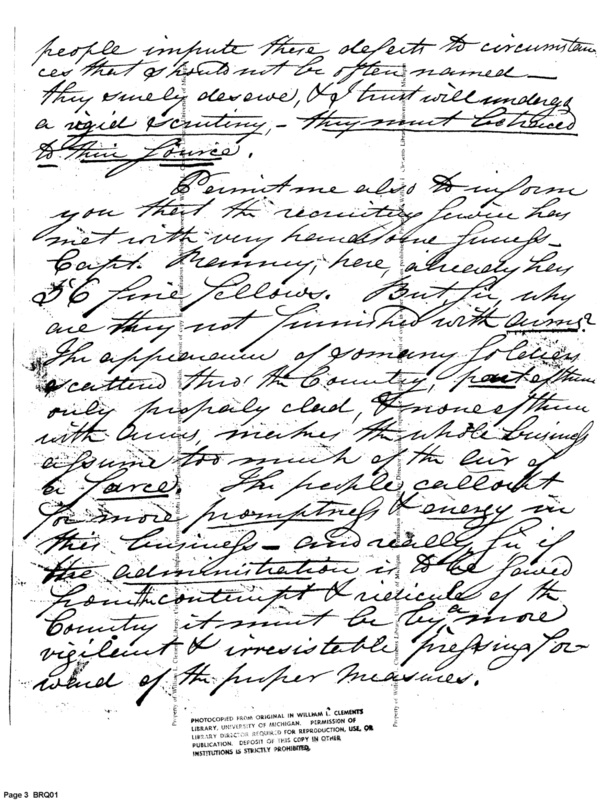 people impute these defects to circumstan
ces that should not be often named —
they surely deserve, & I trust will undergo
a rigid scrutiny, — they must be traced
to their source.
Permit me also to inform
you that the recruiting service has
met with very handsome success —
Capt. here, already has
56 fine fellows. But sir, why
are they not furnished with arms?
The appearance of so many soldiers
scattered thro' the Country, part of them
only properly clad, & none of them
with arms, makes the whole business
assume too much of the air of
a farce. The people call out
for more promptness & energy in
this business — and really, sir if
the administration is to be saved
from the contempt & ridicule of the
Country it must be by a more
vigilent & irresistable pressing for-
ward of the proper measures.
PHOTOCOPIED FROM ORIGINAL IN WILLIAM L. CLEMENTS
LIBRARY, UNIVERSITY OF MICHIGAN. PERMISSION OF
LIBRARY DIRECTOR REQUIRED FOR REPRODUCTION, USE, OR
PUBLICATION. DEPOSIT OF THIS COPY IN OTHER
INSTITUTIONS IS STRICTLY PROHIBITED.
Page 3 BRQ01